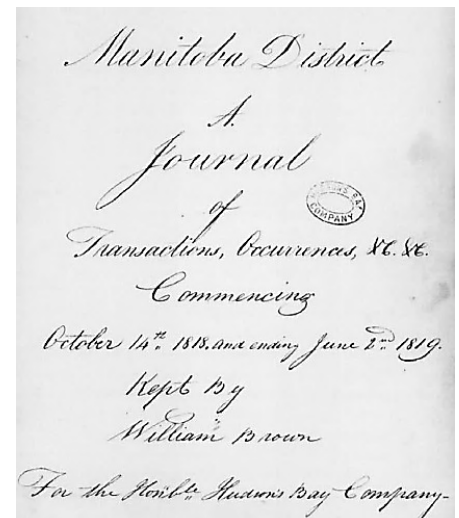 Manitoba District
A
Journal
of
HUDSONS BAY COMPANY
Transactions, Occurrences, &C. &C.
Commencing
October 14th 1818. and ending June 2nd 1819.
Kept By
William Brown
For the Honble Hudson's Bay Company-